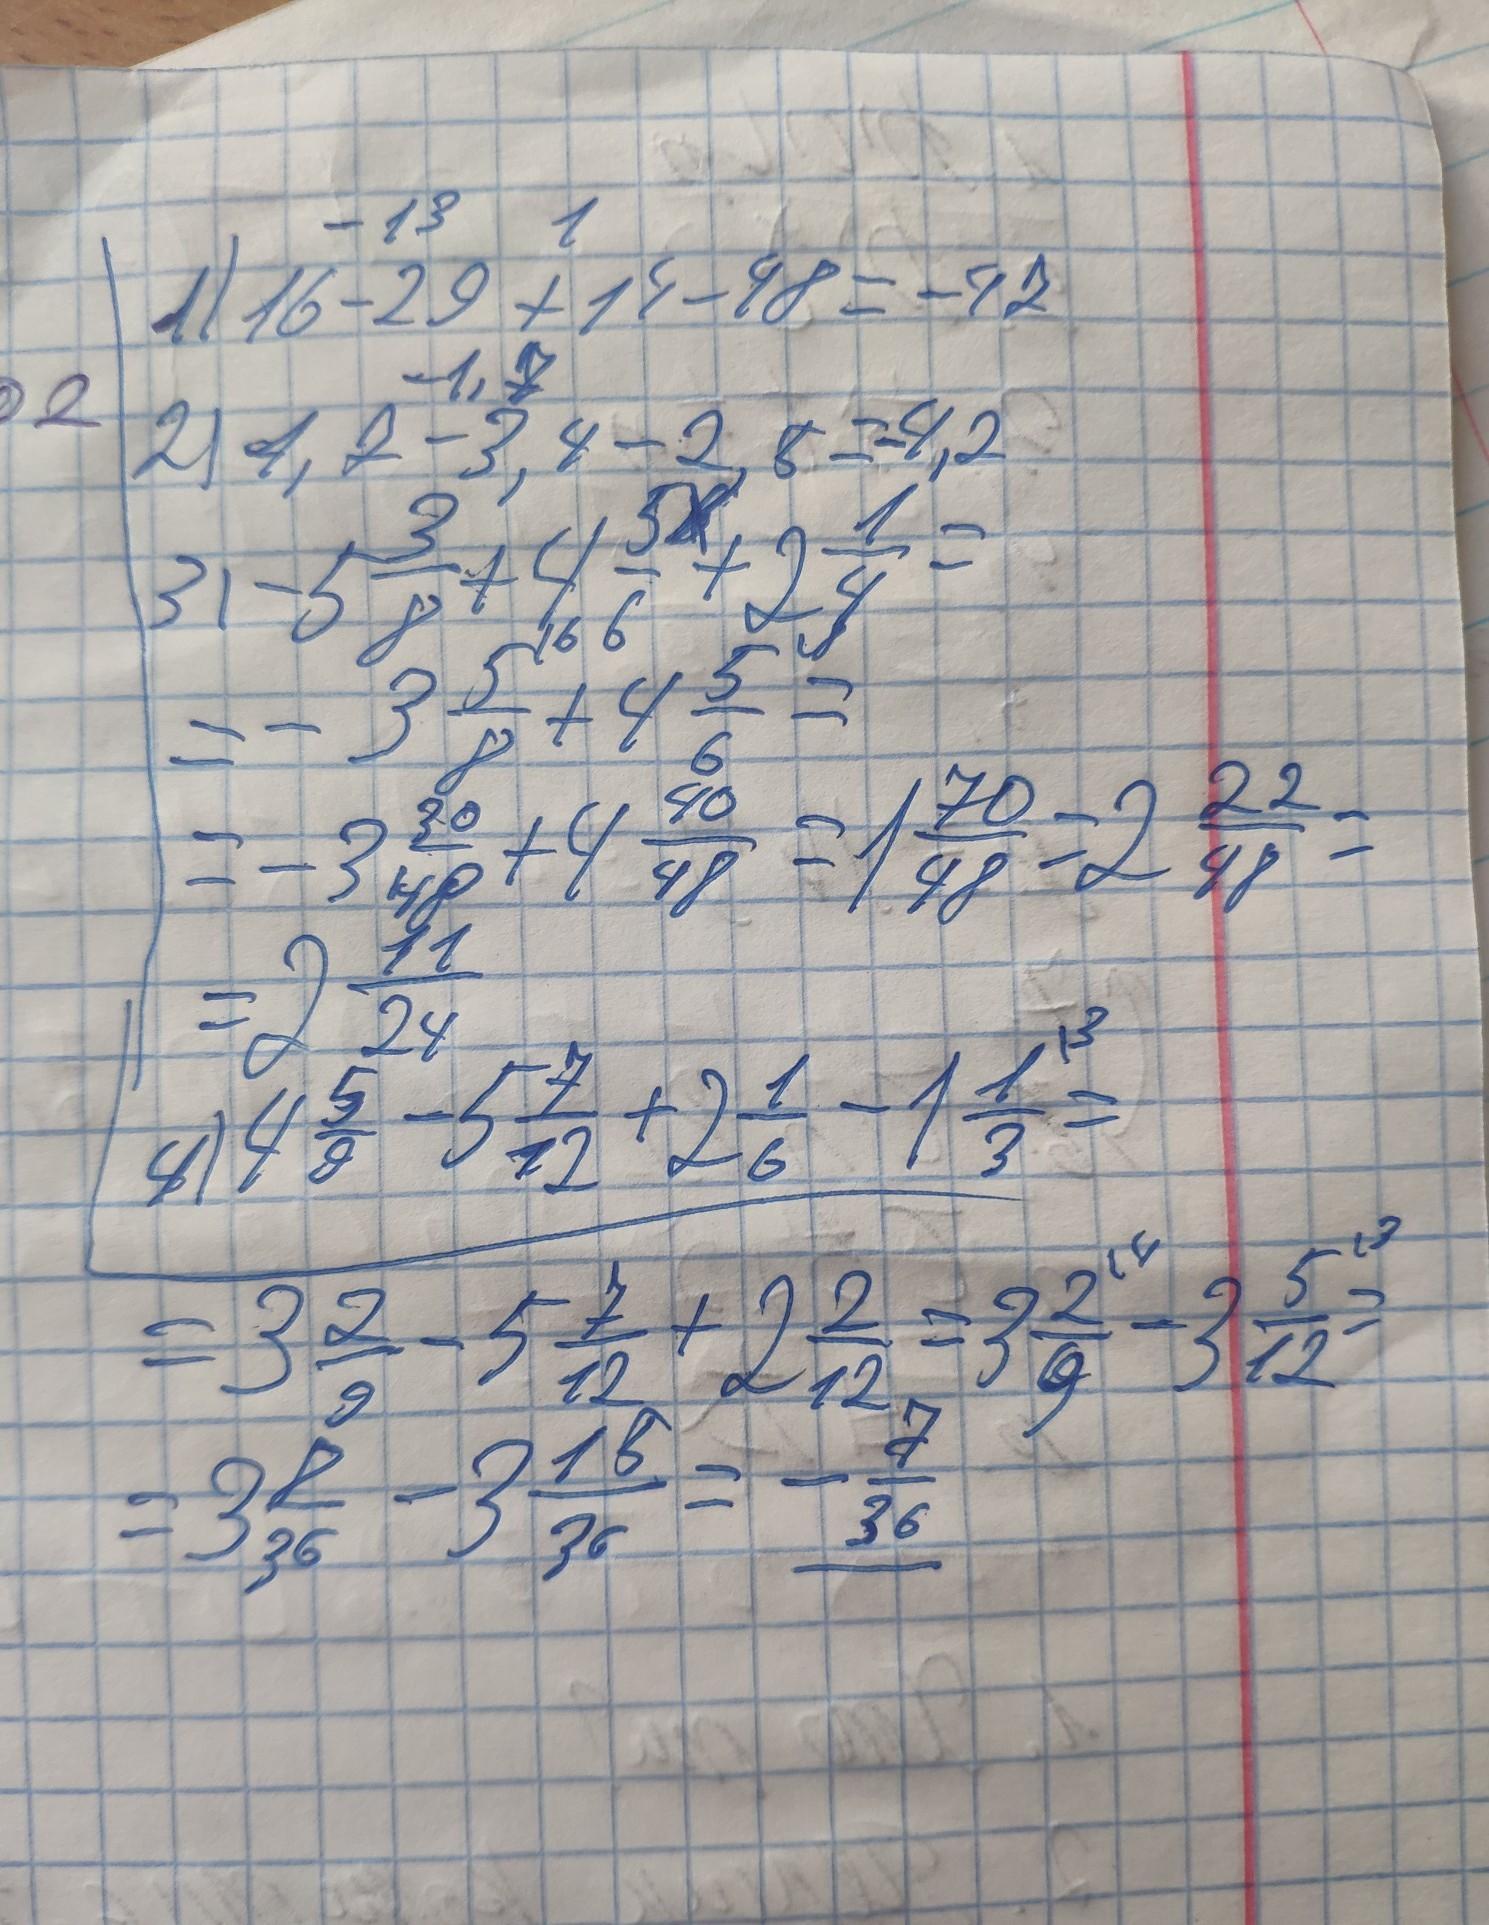 -13 1
1) 16 - 29 + 14 - 48 = -47
02
-1,7
2) 1,7 - 3,4 - 2,5 = -4,2
3) -5 3/8 + 4 5/6 + 2 1/4 =
= -3 5/8 ·6 + 4 5/6 ·8 =
= -3 30/48 + 4 40/48 = 1 70/48 = 2 22/48 =
= 2 11/24
4) 4 5/9 - 5 7/12 + 2 1/6 - 1 1/3 ·3 =
= 3 2/9 - 5 7/12 + 2 2/12 = 3 2/9 ·4 - 3 5/12 ·3 =
= 3 8/36 - 3 15/36 = - 7/36